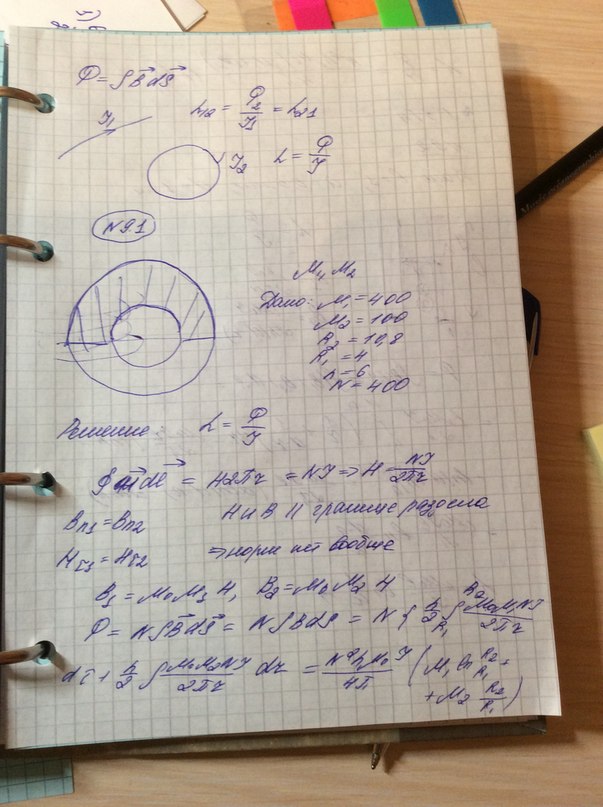 Φ = ∫B⃗dS⃗
I₁
L₁₂ = Φ₂/I₁ = L₂₁
I₂
L = Φ/I
N9.1
M₁, M₂
Дано: M₁ = 400
M₂ = 100
R₂ = 10,8
R₁ = 4
h = 6
N = 400
Решение
L = Φ/I
∮H⃗dl⃗ = H2πr = NI => H = NI/2πr
Bn₁ = Bn₂
H и B || границе раздела
Hτ₁ = Hτ₂
=> норм нет вообще
B₁ = M₀M₁H, B₂ = M₀M₂H
Φ = N∫B⃗dS⃗ = N∫BdS = N{h/2 ∫R₁R₂ M₀M₁NI/2πr
dr + h/2 ∫M₀M₂NI/2πr dr = N²hM₀I/4π (M₁ ln R₂/R₁ +
+ M₂ R₂/R₁)